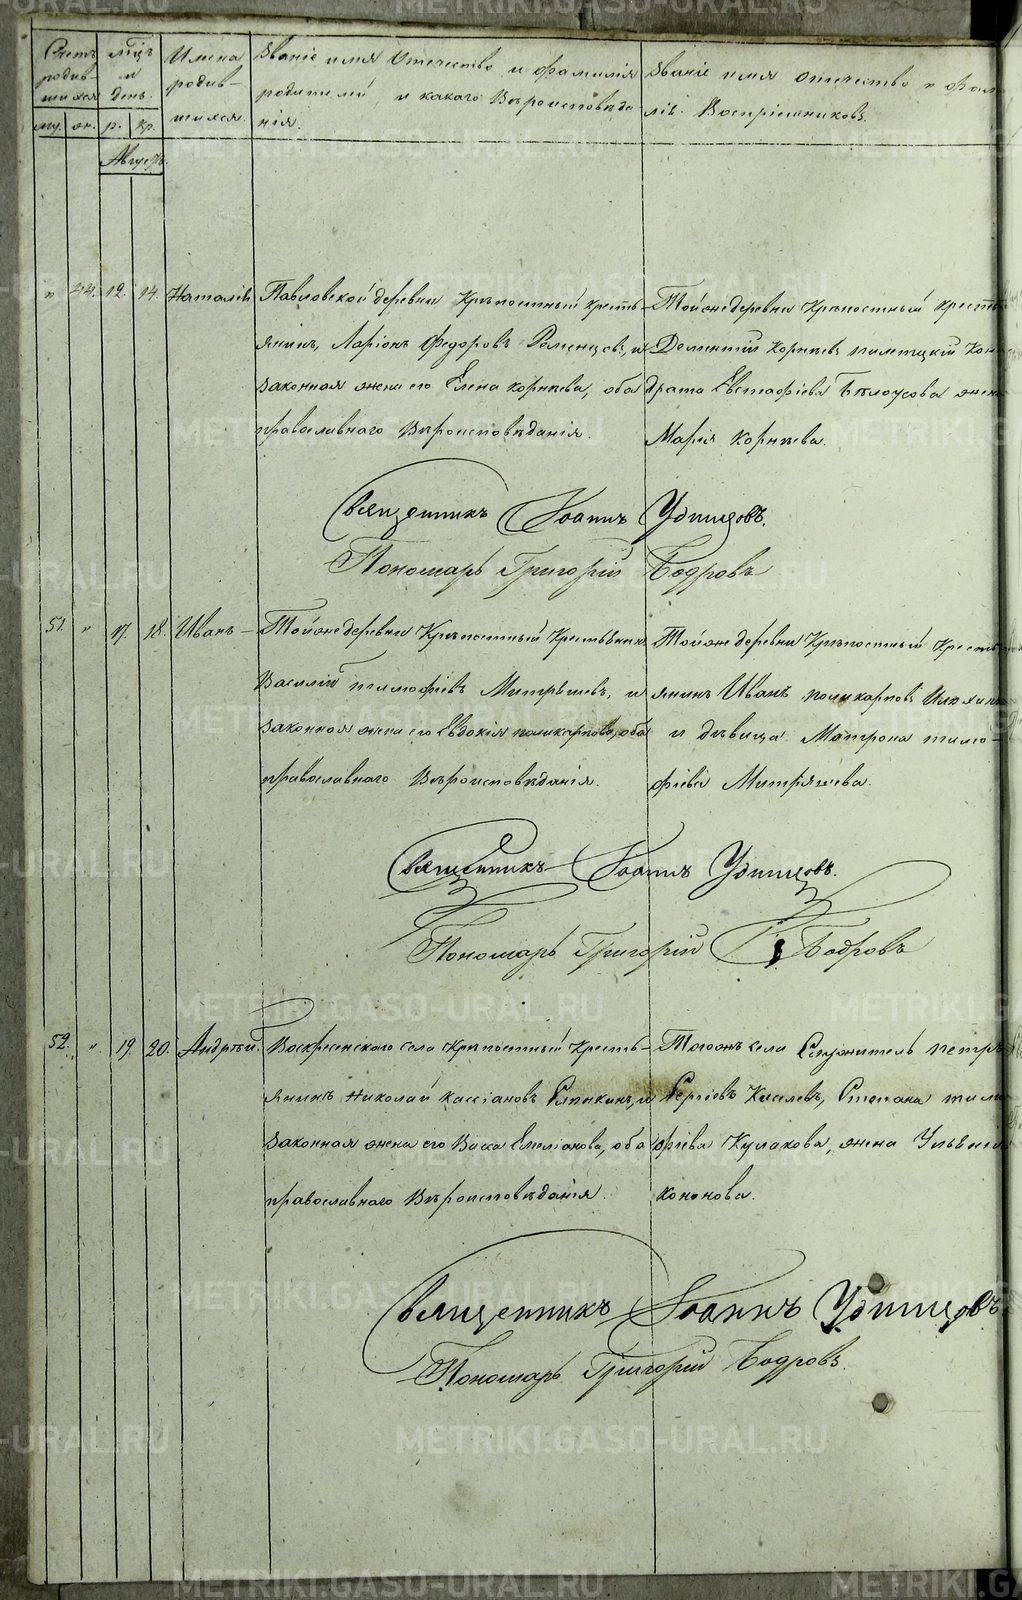 Счетъ родив-шихся
му. же.
м-цъ и день.
р. кр.
Имена родив-шихся
Званіе имя Отчество и фамилія
родителей, и какаго Вѣроисповѣда
нія.
Званіе имя отчество и фами
лія Воспріемниковъ.
Августъ.
" 44. 12. 14. Наталія
Павловской деревни Крѣпостный кресть-
янинъ, Ларіонъ Федоровъ и
законная жена его Елена Корнѣева, оба
православнаго Вѣроисповѣданія.
Тойже деревни Крѣпостный кресть
Дементій Корнѣевъ
Евстафіева Бѣлоусова жена
Марія Корнѣева.
Священникъ Іоаннъ Удинцовъ.
Пономарь Григорій Бодровъ
51. " 17. 18. Иванъ-
Тойже деревни Крѣпостный Крестьянинъ
Василій тимофѣевъ и
законная жена его Евдокія поликарпова, оба
православнаго Вѣроисповѣданія.
Тойже деревни Крѣпостный Кресть
янинъ Иванъ поликарповъ Илюхинъ
и дѣвица Матрона тимо-
фѣева Митряшева.
Священникъ Іоаннъ Удинцовъ.
Пономарь Григорій Бодровъ
52. " 19. 20. Андрей.
Воскресенскаго села Крѣпостный Кресть-
янинъ Николай Кассіановъ и
законная жена его Васса Емеліанова, оба
православнаго Вѣроисповѣданія.
Тогожъ села Служитель петръ
Сергіевъ Киселевъ, Степана тимо
фѣева Кулакова, жена Ульянія
кононова.
Священникъ Іоаннъ Удинцовъ
Пономарь Григорій Бодровъ.
METRIKI.GASO-URAL.RU